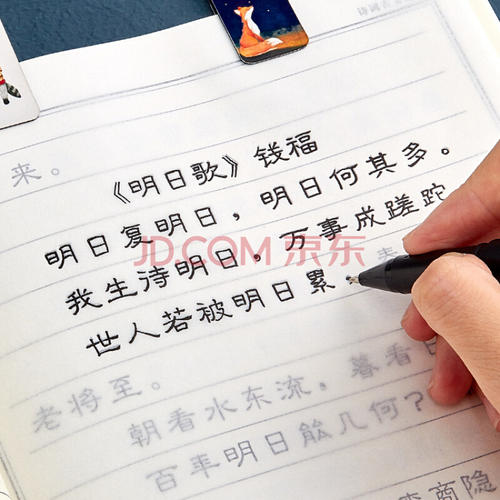 诗词
来。
《明日歌》钱福
明日复明日，明日何其多。
我生待明日，万事成蹉跎
世人若被明日累
老将至。
朝看水东流，暮看日
百年明日能几何？
李商隐
JD.COM 京东